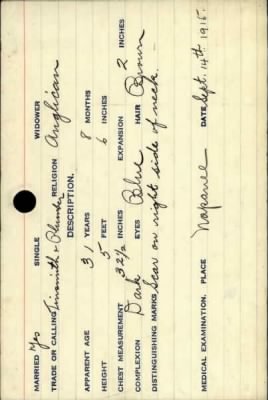 MARRIED Yes SINGLE WIDOWER
TRADE OR CALLING Tinsmith & Plumber RELIGION Anglican
DESCRIPTION.
APPARENT AGE 31 YEARS 8 MONTHS
HEIGHT 5 FEET 6 INCHES
CHEST MEASUREMENT 32½ INCHES EXPANSION 2 INCHES
COMPLEXION Dark EYES Blue HAIR Brown
DISTINGUISHING MARKS Scar on right side of neck.
MEDICAL EXAMINATION. PLACE Napanee DATE Sept. 14th 1915.